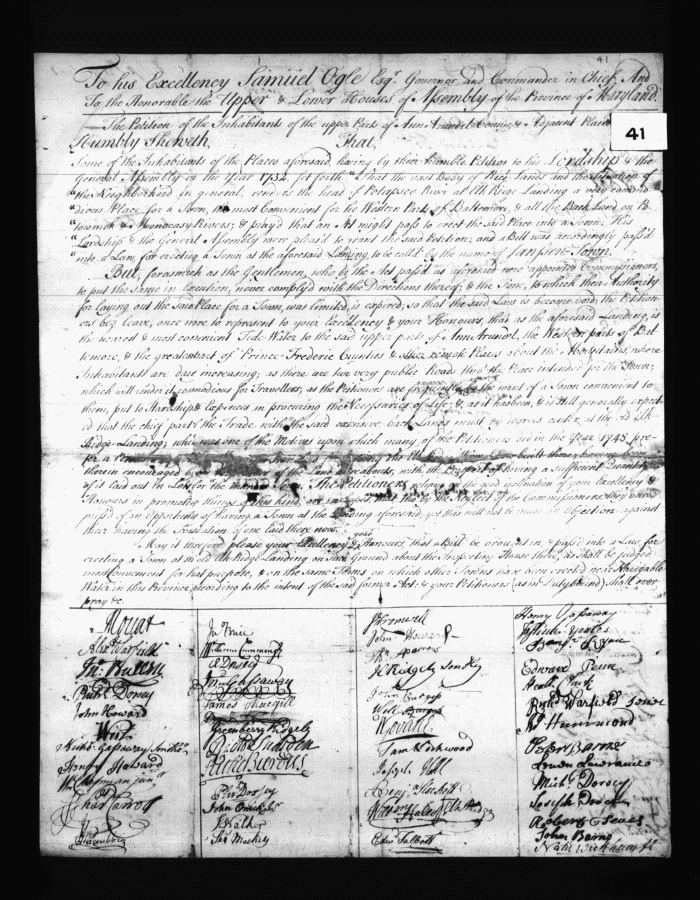 41
To his Excellency Samuel Ogle Esqr. Governor and Commander in Chief, And
To the Honorable the Upper & Lower Houses of Assembly of the Province of Maryland.
The Petition of the Inhabitants of the upper Parts of Ann Arundel County, & Adjacent Places
41
Humbly Sheweth That,
Some of the Inhabitants of the Places aforesaid, having by their humble Petition to his Lordship & the
General Assembly in the Year 1732, set forth "That the vast Body of Rich Lands and the Situation of
"the Neighborhood in general, renders the head of Potapsco River at Elk Ridge Landing a very commo
"dious Place for a Town, the most Convenient for the Western Parts of Baltemore, & all the Back Land on Po
"towmack & Monocasy Rivers; & pray'd that an Act might pass to erect the said Place into a Town. His
"Lordship & the General Assembly were pleas'd to grant the said Petition; and a Bill was accordingly pass'd
into a Law, for erecting a Town at the aforesaid Landing, to be call'd by the name of Janssen-Town.
But, forasmuch as the Gentlemen, who by the Act pass'd as aforesaid were appointed Commissioners,
to put the same in Execution, never comply'd with the Directions thereof; & the Time, to which their Authority
for laying out the said Place for a Town, was limited, is expired, so that the said Law is become void; the Petition-
ers beg leave, once more to represent to your Excellency & your Honours, that as the aforesaid Landing, is
the nearest & most convenient Tide Water to the said upper parts of Ann Arundel, the Western parts of Bal
temore, & the greatest part of Prince Frederic Counties & other remote Places about the Mountains, where
Inhabitants are dayly increasing; as there are two very public Roads thro' the Place intended for the Town,
which will render it commodious for Travellers; as the Petitioners are frequently by the want of a Town convenient to
them, put to Hardships & Expences in procuring the Necessarys of Life; & as it has been, & is still generally expect-
ed that the chief part of the Trade with the said extensive back Lands must by degrees center at the old Elk-
Ridge-Landing; which was one of the Motives upon which many of the Petitioners did in the Year 1745 pre-
therein encouraged by Land thereabouts, with the Prospect of having a sufficient Quantity
of it laid out in Lots for the intended Town: The Petitioners relying on the good inclination of your Excellency &
Honours in promoting things of this kind, are in hopes that tho' by the Neglect of the Commissioners they were
miss'd of an Opportunity of having a Town at the Landing aforesaid, yet this will not be made an Objection against
their having the Foundation of one laid there now.
May it therefore please your Excellency & your Honours, that a Bill be brought in, & pass'd into a Law, for
erecting a Town at the old Elk-Ridge-Landing on such Ground about the Inspecting House there, as shall be judged
most convenient for that purpose, & on the same Terms on which other Towns have been erected near Navigable
Water in this Province according to the intent of the said former Act: & your Petitioners (as in Duty bound) shall ever
pray &c.
Mouat
Alexr Warfield
Jno: Bullen
Richd Dorsey
John Howard
Nichs Gassaway
Henry Howard
Wm Chapman junr
Char Carroll
Jno Price
William Cumming
Jno Gassaway
James
Greenberry Ridgely
Elie Dorsey
John
J Walker
Jas Mackey
J Cromwell
John Howard
Thos Sparrow
H Ridgely
John Burgess
Will Burges
Sam Norwood
Joseph Hall
Benj Hackett
Edw Talbott
Henry Gassaway
Benja
Edward Penn
Richd Warfield senior
Wm Hammond
Peter Barns
Leven Lawrance
Michl Dorsey
Joseph
Robert
John Barns